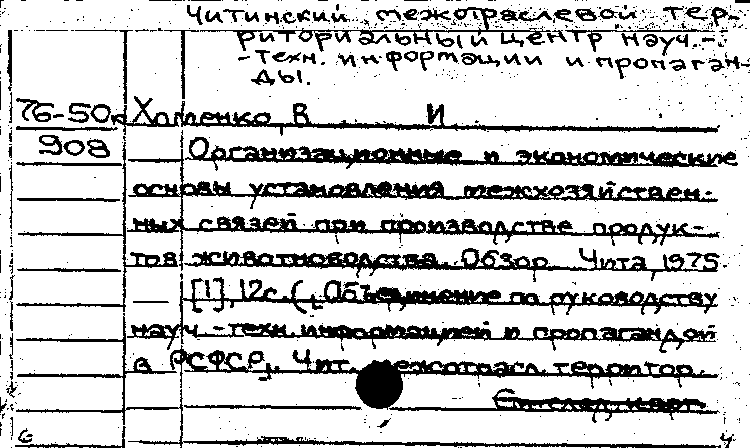 Читинский межотраслевой тер-
риториальный центр науч.-
-техн. информации и пропаган-
ды.
76-50к Хоменко, В И
908 Организационные и экономические
основы установления межхозяйствен-
ных связей при производстве продук-
тов животноводства. Обзор. Чита, 1975
[1], 12с. (Объединение по руководству
науч.-техн. информацией и пропагандой
в РСФСР]. Чит. межотрасл. территор.
См. след. карт.